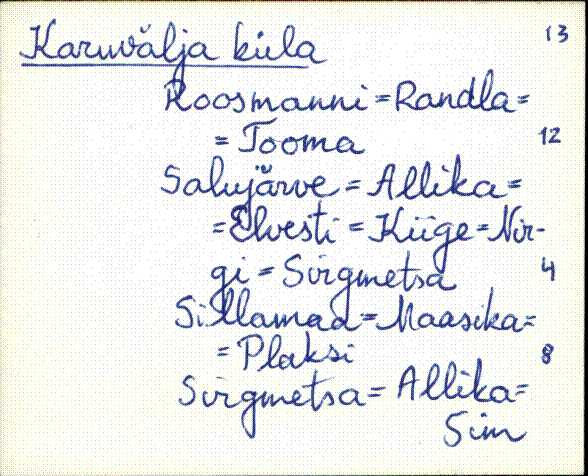 Karuvälja küla 13
Roosmanni = Randla =
= Tooma 12
Salujärve = Allika =
= Elvesti = Kiige = Nir-
gi = Sirgmetsa 4
Sillamaa = Maasika =
= Plaksi 8
Sirgmetsa = Allika =
Sim